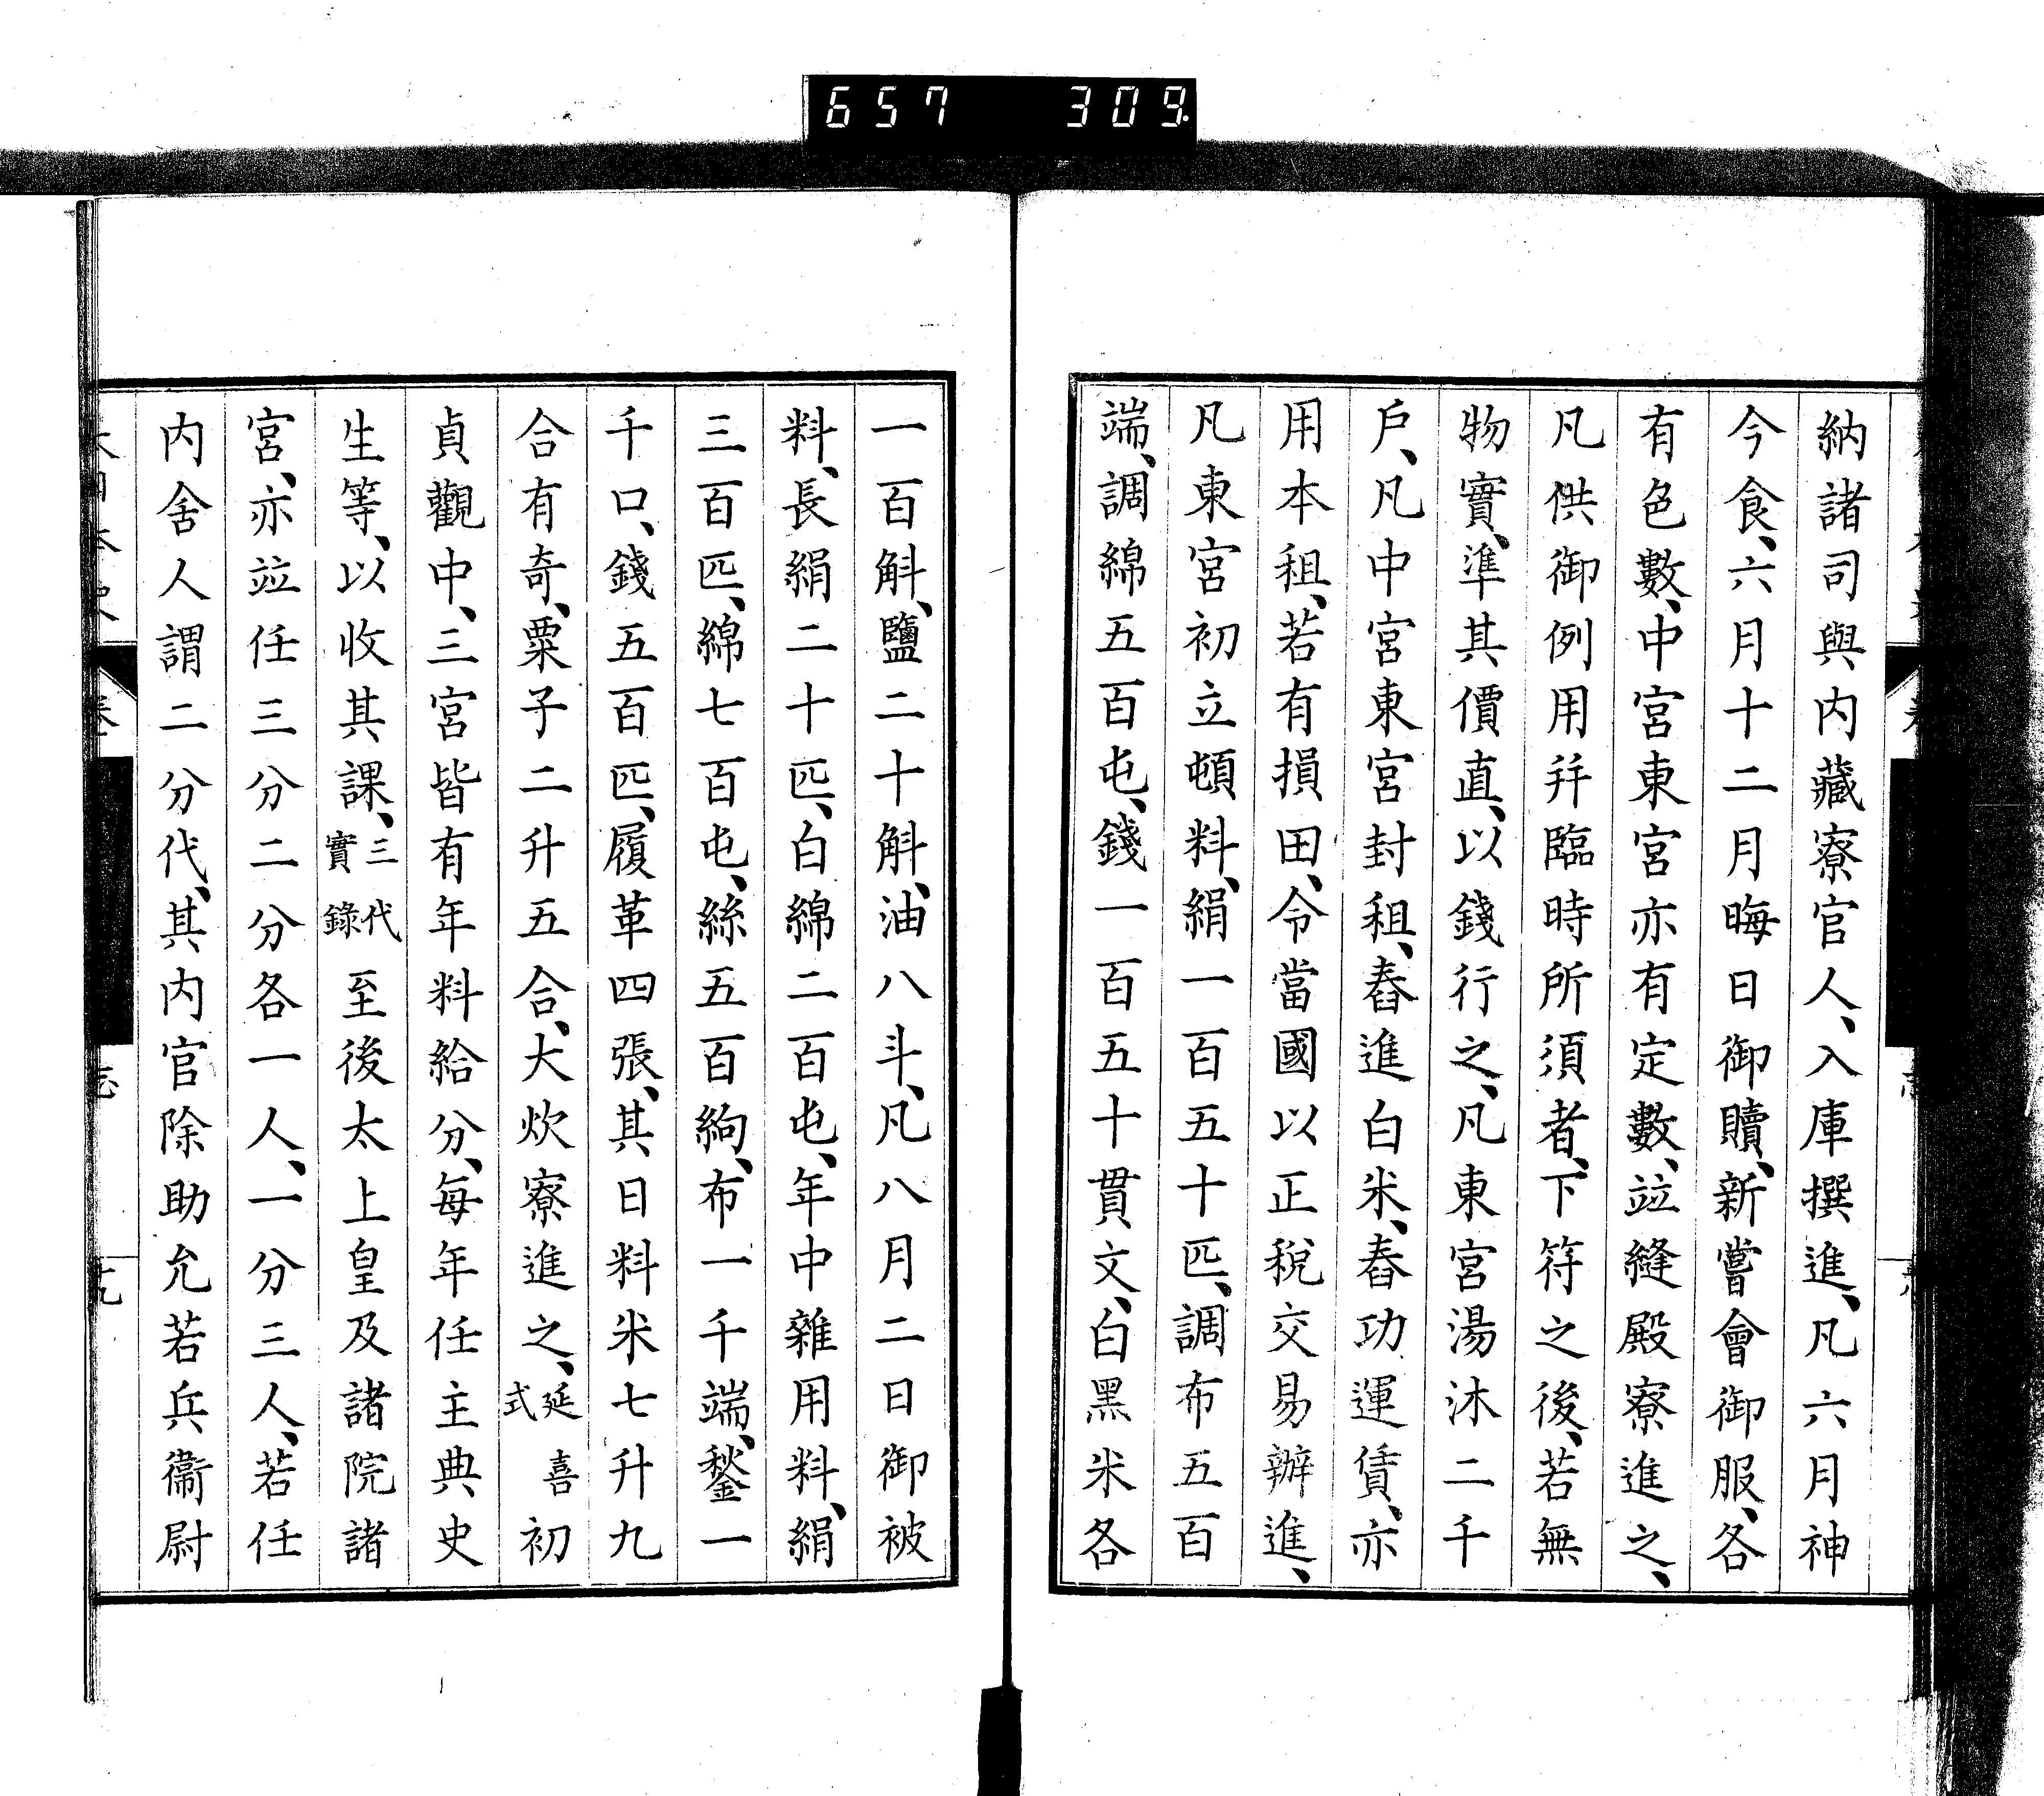 657 309
納諸司與内藏寮官人、入庫撰進、凡六月神
今食、六月十二月晦日御贖、新嘗會御服、各
有色數、中宮東宮亦有定數、竝縫殿寮進之、
凡供御例用幷臨時所須者、下符之後、若無
物實、準其價直、以錢行之、凡東宮湯沐二千
戶、凡中宮東宮封租、舂進白米、舂功運賃、亦
用本租、若有損田、令當國以正稅交易辦進、
凡東宮初立頓料、絹一百五十匹、調布五百
端、調綿五百屯、錢一百五十貫文、白黑米各
一百斛、鹽二十斛、油八斗、凡八月二日御被
料、長絹二十匹、白綿二百屯、年中雜用料、絹
三百匹、綿七百屯、絲五百絇、布一千端、鍫一
千口、錢五百匹、履革四張、其日料米七升九
合有奇、粟子二升五合、大炊寮進之、延喜式初
貞觀中、三宮皆有年料給分、每年任主典史
生等、以收其課、三代實錄至後太上皇及諸院諸
宮、亦竝任三分二分各一人、一分三人、若任
内舍人謂二分代、其内官除助允若兵衞尉